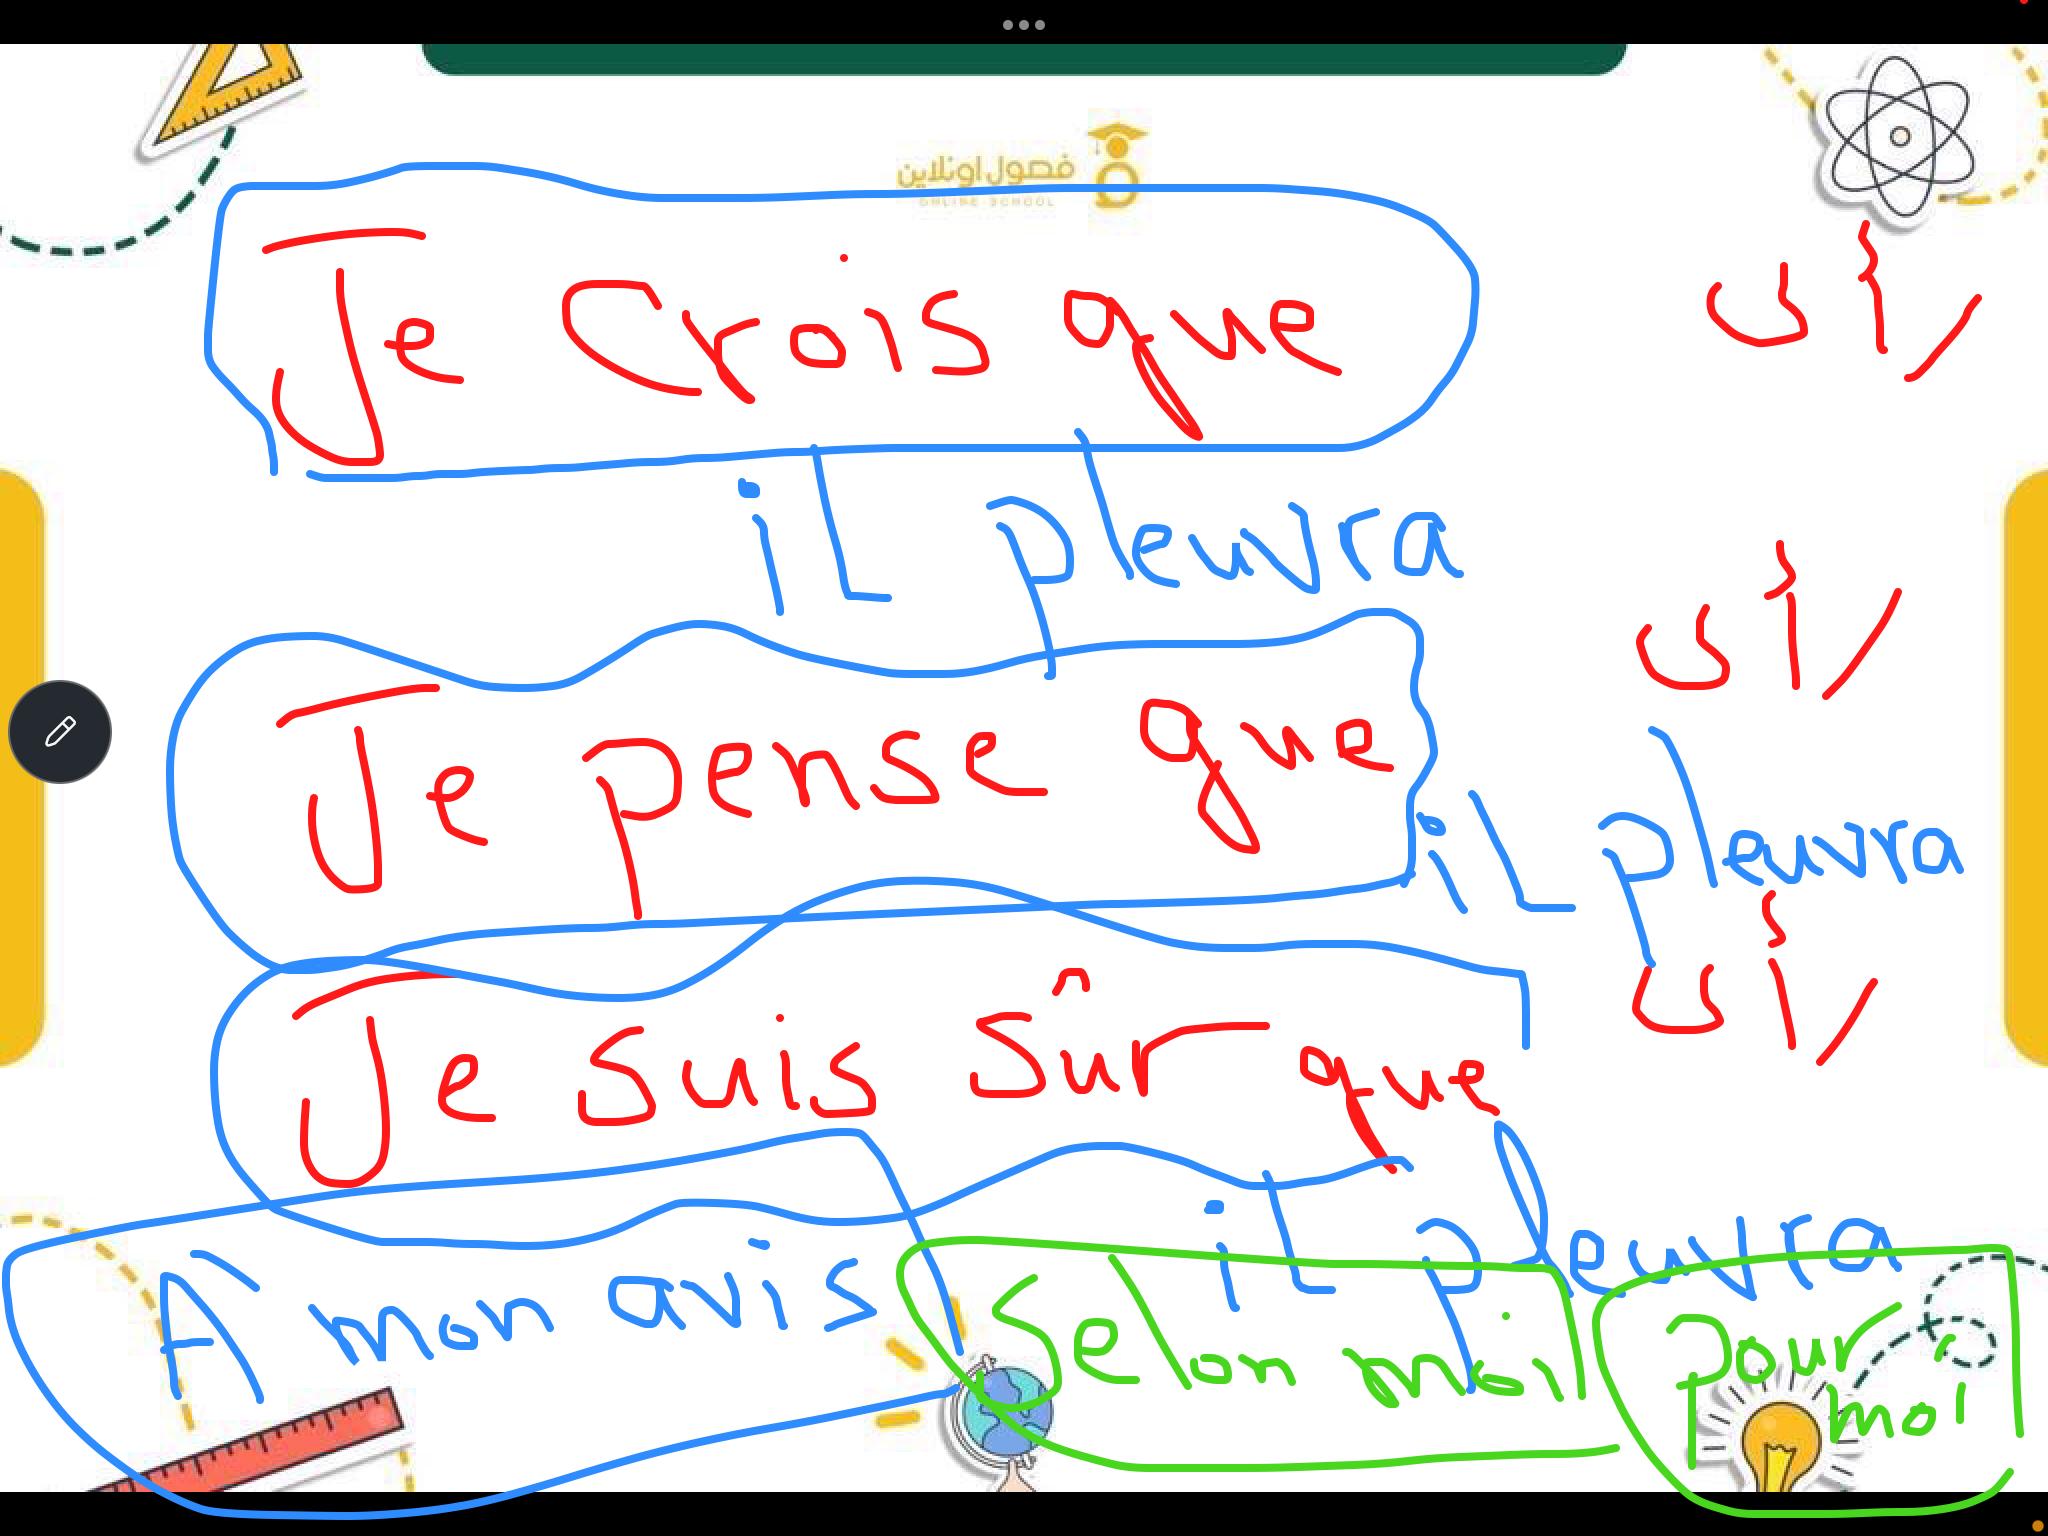 فصول اونلاين
ONLINE SCHOOL
Je crois que
il pleuvra
Je pense que
il pleuvra
Je suis sûr que
il pleuvra
A mon avis
Selon moi
pour moi